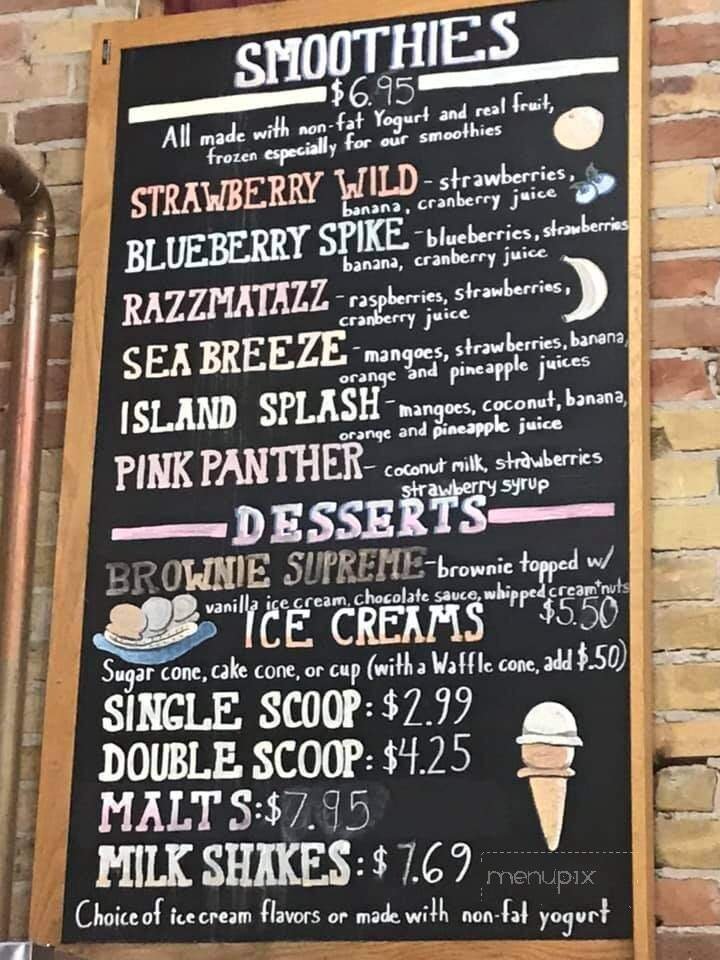 SMOOTHIES
$6.95
All made with non-fat Yogurt and real fruit,
frozen especially for our smoothies
STRAWBERRY WILD - strawberries,
banana, cranberry juice
BLUEBERRY SPIKE - blueberries, strawberries
banana, cranberry juice
RAZZMATAZZ - raspberries, strawberries,
cranberry juice
SEA BREEZE - mangoes, strawberries, banana,
orange and pineapple juices
ISLAND SPLASH - mangoes, coconut, banana,
orange and pineapple juice
PINK PANTHER - coconut milk, strawberries
strawberry syrup
DESSERTS
BROWNIE SUPREME - brownie topped w/
vanilla ice cream, chocolate sauce, whipped cream + nuts
$5.50
ICE CREAMS
Sugar cone, cake cone, or cup (with a Waffle cone, add $.50)
SINGLE SCOOP: $2.99
DOUBLE SCOOP: $4.25
MALTS: $7.95
MILK SHAKES: $7.69
menupix
Choice of ice cream flavors or made with non-fat yogurt